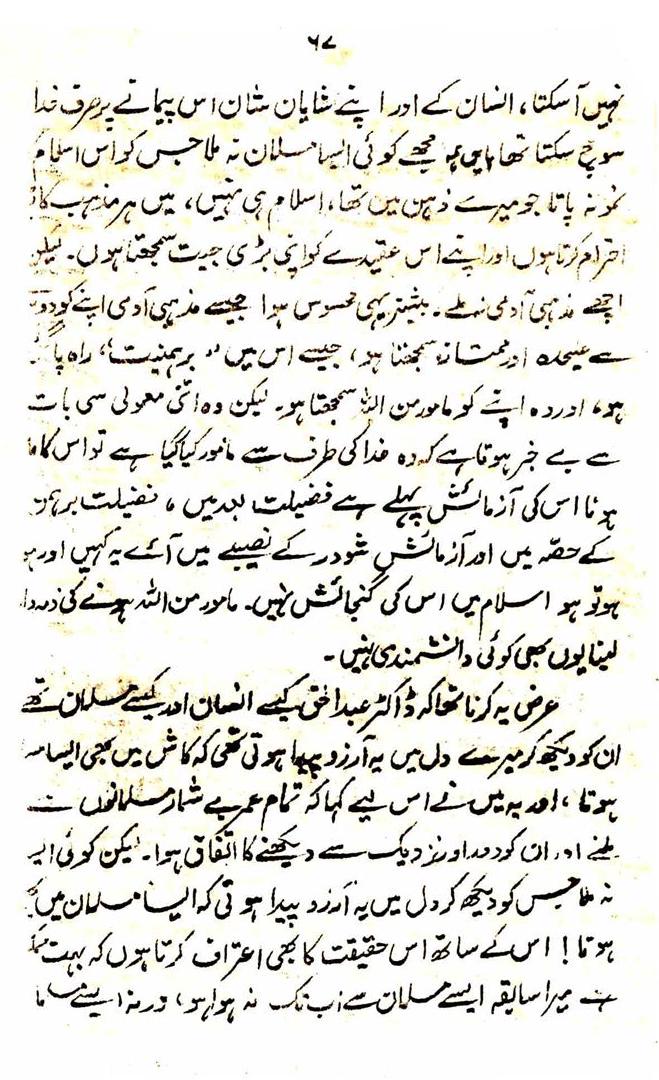 ۶۷
نہیں آسکتا، انسان کے اور اپنے شایان شان اس پیمانے پر صرف خدا
سوچ سکتا تھا بایں ہمہ مجھے کوئی ایسا مسلمان نہ ملا جس کو اس اسلام
نمونہ پاتا جو میرے ذہن میں تھا، اسلام ہی نہیں، میں ہر مذہب کا
احترام کرتا ہوں اور اپنے اس عقیدے کو اپنی بڑی جیت سمجھتا ہوں۔ لیکن
اچھے مذہبی آدمی نہ ملے۔ بیشتر یہی محسوس ہوا جیسے مذہبی آدمی اپنے کو
سے علیحدہ اور ممتاز سمجھتا ہو، جیسے اس میں "برہمنیت" راہ پا
ہو، اور وہ اپنے کو مامور من اللہ سمجھتا ہو۔ لیکن وہ اتنی معمولی سی بات
سے بے خبر ہوتا ہے کہ وہ خدا کی طرف سے مامور کیا گیا ہے تو اس کا
ہونا اس کی آزمائش پہلے ہے فضیلت بعد میں، فضیلت برہمن
کے حصّہ میں اور آزمائش شودر کے نصیبے میں آئے یہ کہیں اور ہو
ہو تو ہو اسلام میں اس کی گنجائش نہیں۔ مامور من اللہ ہونے کی ذمہ دا
لینا یوں بھی کوئی دانشمندی نہیں۔
عرض یہ کرنا تھا کہ ڈاکٹر عبدالحق کیسے انسان اور کیسے مسلمان تھے
ان کو دیکھ کر میرے دل میں یہ آرزو پیدا ہوتی تھی کہ کاش میں بھی ایسا
ہوتا، اور یہ میں نے اس لیے کہا کہ تمام عمر بے شمار مسلمانوں سے
ملنے اور ان کو دور اور نزدیک سے دیکھنے کا اتفاق ہوا۔ لیکن کوئی ایسا
نہ ملا جس کو دیکھ کر دل میں یہ آرزو پیدا ہوتی کہ ایسا مسلمان میں
ہوتا! اس کے ساتھ اس حقیقت کا بھی اعتراف کرتا ہوں کہ بہت ممکن
ہے میرا سابقہ ایسے مسلمان سے اب تک نہ ہوا ہو، ورنہ ایسے